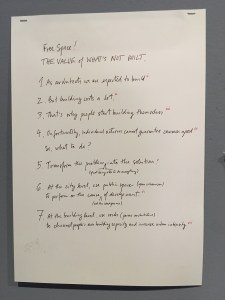 Free Space!
THE VALUE OF WHAT'S NOT BUILT.
1. As architects we are expected to build"
2. But building costs a lot"
3. That's why people start building themselves"
4. Unfortunately, individual actions cannot guarantee common good"
So, what to do?
5 Transform the problem into the solution!
6 At the city level, use public spaces
to perform as the cause, of development."
7 At the building level, we
to channel people's own building capacity and